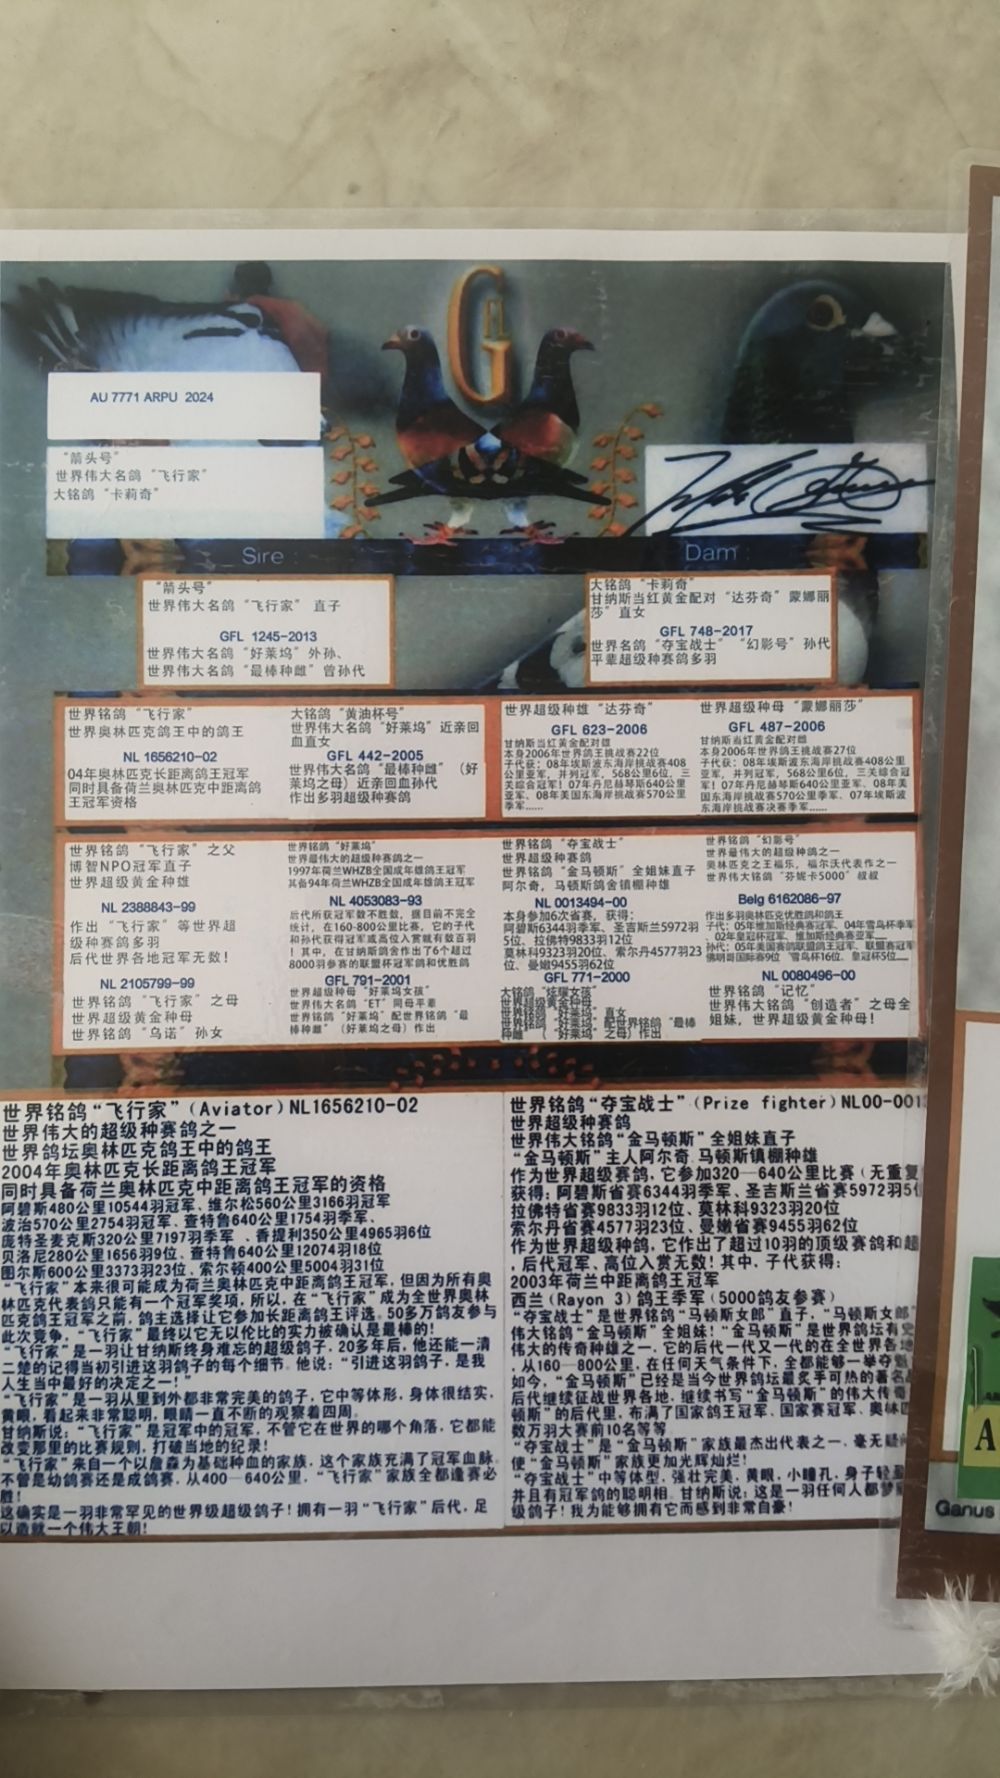 GFL
AU 7771 ARPU 2024
“箭头号”
世界伟大名鸽“飞行家”
大铭鸽“卡莉奇”
Sire :
Dam :
“箭头号”
世界伟大名鸽“飞行家”直子
GFL 1245-2013
世界伟大名鸽“好莱坞”外孙、
世界伟大名鸽“最棒种雌”曾孙代
大铭鸽“卡莉奇”
甘纳斯当红黄金配对“达芬奇”蒙娜丽
莎”直女
GFL 748-2017
世界名鸽“夺宝战士”“幻影号”孙代
平辈超级种赛鸽多羽
世界铭鸽“飞行家”
世界奥林匹克鸽王中的鸽王
NL 1656210-02
04年奥林匹克长距离鸽王冠军
同时具备荷兰奥林匹克中距离鸽
王冠军资格
大铭鸽“黄油杯号”
世界伟大名鸽“好莱坞”近亲回
血直女
GFL 442-2005
世界伟大名鸽“最棒种雌”（好
莱坞之母）近亲回血孙代
作出多羽超级种赛鸽
世界超级种雄“达芬奇”
GFL 623-2006
甘纳斯当红黄金配对雄
本身2006年世界鸽王挑战赛22位
子代获：08年埃斯波东海岸挑战赛408
公里亚军，并列冠军，568公里6位，三
关综合冠军！07年丹尼赫琴斯640公里
亚军、08年美国东海岸挑战赛570公里
季军......
世界超级种母“蒙娜丽莎”
GFL 487-2006
甘纳斯当红黄金配对雌
本身2006年世界鸽王挑战赛27位
子代获：08年埃斯波东海岸挑战赛408公里
亚军，并列冠军，568公里6位，三关综合冠
军！07年丹尼赫琴斯640公里亚军、08年美
国东海岸挑战赛570公里季军、07年埃斯波
东海岸挑战赛决赛季军......
世界铭鸽“飞行家”之父
博智NPO冠军直子
世界超级黄金种雄
NL 2388843-99
作出“飞行家”等世界超
级种赛鸽多羽
后代世界各地冠军无数！
NL 2105799-99
世界铭鸽“飞行家”之母
世界超级黄金种母
世界铭鸽“乌诺”孙女
世界铭鸽“好莱坞”
世界最伟大的超级种赛鸽之一
1997年荷兰WHZB全国成年雄鸽王冠军
其备94年荷兰WHZB全国成年雄鸽王冠军
NL 4053083-93
后代所获冠军数不胜数，据目前不完全
统计，在160-800公里比赛，它的子代
和孙代获得冠军或高位入赏就有数百羽
！其中，在甘纳斯鸽舍作出了6个超过
8000羽参赛的联盟杯冠军鸽和优胜鸽
GFL 791-2001
世界超级种母“好莱坞女孩”
世界伟大名鸽“ET”同母平辈
世界铭鸽“好莱坞”配世界铭鸽“最
棒种雌”（好莱坞之母）作出
世界铭鸽“夺宝战士”
世界超级种赛鸽
世界铭鸽“金马顿斯”全姐妹直子
阿尔奇，马顿斯鸽舍镇棚种雄
NL 0013494-00
本身参加6次省赛，获得：
阿碧斯6344羽季军、圣吉斯兰5972羽
5位、拉佛特9833羽12位
莫林科9323羽20位、索尔丹4577羽23
位、曼嫩9455羽62位
GFL 771-2000
大铭鸽“炫耀女孩”
世界超级黄金种母
世界铭鸽“好莱坞”直女
世界铭鸽“好莱坞”配世界铭鸽“最棒
种雌”（“好莱坞”之母）作出
世界铭鸽“幻影号”
世界最伟大的超级种鸽之一
奥林匹克之王福乐，福尔沃代表作之一
世界伟大铭鸽“芬妮卡5000”叔叔
Belg 6162086-97
作出多羽奥林匹克优胜鸽和鸽王
子代：05年维加斯经典赛冠军、04年雪鸟杯季军
、02年皇冠杯冠军、维加斯经典赛亚军......
孙代：05年美国赛鸽联盟鸽王冠军、联盟赛冠军
佛明哥国际赛9位 雪鸟杯16位、皇冠杯5位......
NL 0080496-00
世界铭鸽“记忆”
世界伟大铭鸽“创造者”之母全
姐妹，世界超级黄金种母！
世界铭鸽“飞行家”（Aviator）NL1656210-02
世界伟大的超级种赛鸽之一
世界鸽坛奥林匹克鸽王中的鸽王
2004年奥林匹克长距离鸽王冠军
同时具备荷兰奥林匹克中距离鸽王冠军的资格
阿碧斯480公里10544羽冠军、维尔松560公里3166羽冠军
波治570公里2754羽冠军、查特鲁640公里1754羽季军、
庞特圣麦克斯320公里7197羽季军 、香提利350公里4965羽6位
贝洛尼280公里1656羽9位、查特鲁640公里12074羽18位
图尔斯600公里3373羽23位、索尔顿400公里5004羽31位
“飞行家”本来很可能成为荷兰奥林匹克中距离鸽王冠军，但因为所有奥
林匹克代表鸽只能有一个冠军奖项，所以，在“飞行家”成为全世界奥林
匹克鸽王冠军之前，鸽主选择让它参加长距离鸽王评选，50多万鸽友参与
此次竞争，“飞行家”最终以它无以伦比的实力被确认是最棒的！
“飞行家”是一羽让甘纳斯终身难忘的超级鸽子，20多年后，他还能一清
二楚的记得当初引进这羽鸽子的每个细节。他说：“引进这羽鸽子，是我
人生当中最好的决定之一！”
“飞行家”是一羽从里到外都非常完美的鸽子，它中等体形，身体很结实，
黄眼，看起来非常聪明，眼睛一直不断的观察着四周。
甘纳斯说：“飞行家”是冠军中的冠军，不管它在世界的哪个角落，它都能
改变那里的比赛规则，打破当地的纪录！
“飞行家”来自一个以詹森为基础种血的家族，这个家族充满了冠军血脉，
不管是幼鸽赛还是成鸽赛，从400－640公里，“飞行家”家族全都逢赛必
胜！
这确实是一羽非常罕见的世界级超级鸽子！拥有一羽“飞行家”后代，足
以造就一个伟大王朝！
世界铭鸽“夺宝战士”（Prize fighter）NL00-001
世界超级种赛鸽
世界伟大铭鸽“金马顿斯”全姐妹直子
“金马顿斯”主人阿尔奇.马顿斯镇棚种雄
作为世界超级赛鸽，它参加320－640公里比赛（无重复
获得：阿碧斯省赛6344羽季军、圣吉斯兰省赛5972羽5位
拉佛特省赛9833羽12位、莫林科9323羽20位
索尔丹省赛4577羽23位、曼嫩省赛9455羽62位
作为世界超级种鸽，它作出了超过10羽的顶级赛鸽和超
，后代冠军、高位入赏无数！其中，子代获得：
2003年荷兰中距离鸽王冠军
西兰（Rayon 3）鸽王季军（5000鸽友参赛）
“夺宝战士”是世界铭鸽“马顿斯女郎”直子，“马顿斯女郎”
伟大铭鸽“金马顿斯”全姐妹！“金马顿斯”是世界鸽坛有史
伟大的传奇种雄之一，它的后代一代又一代的在全世界各地
，从160－800公里，在任何天气条件下，全都能够一举夺魁
如今，“金马顿斯”已经是当今世界鸽坛最炙手可热的著名
后代继续征战世界各地，继续书写“金马顿斯”的伟大传奇
顿斯”的后代里，布满了国家鸽王冠军、国家赛冠军、奥林匹
数万羽大赛前10名等等
“夺宝战士”是“金马顿斯”家族最杰出代表之一，毫无疑问
使“金马顿斯”家族更加光辉灿烂！
“夺宝战士”中等体型，强壮完美，黄眼，小瞳孔，身子轻盈
并且有冠军鸽的聪明相。甘纳斯说：这是一羽任何人都梦
级鸽子！我为能够拥有它而感到非常自豪！
A
Ganus